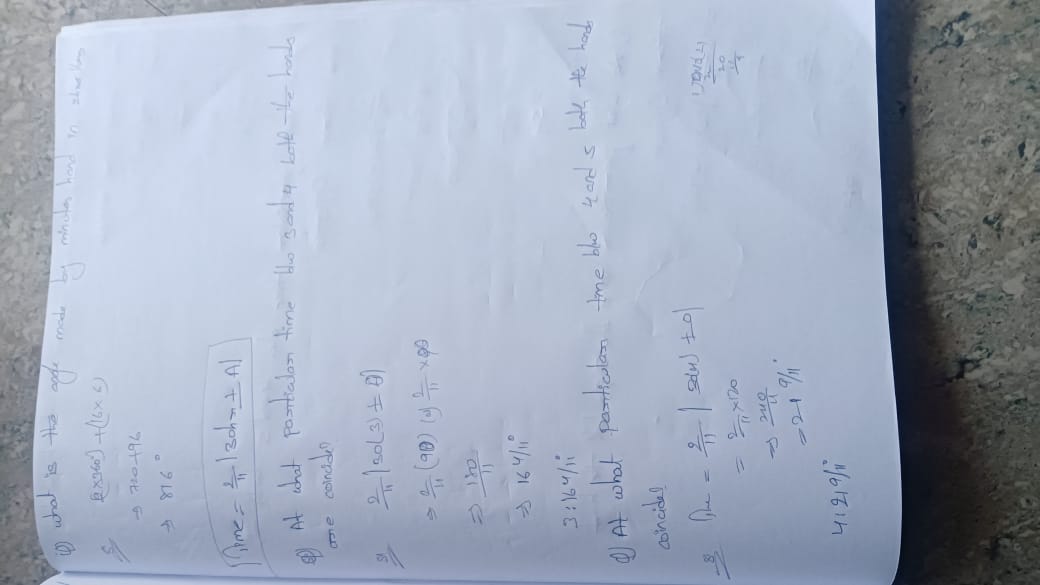 Q) what is the angle made by minutes hand in
(2x360°) + (16x6)
⇒ 720+96
⇒ 816°
Time = 2/11 | 30hr ± A |
Q) At what particular time b/w 3 and 4 both the hands
are coincide?
2/11 | 30(3) ± 0 |
⇒ 2/11 (90) 2/11 x 90
⇒ 180/11
⇒ 16 4/11
3:16 4/11
Q) At what particular time b/w 4 and 5 both the hands
coincide?
Time = 2/11 | 30(4) ± 0 |
= 2/11 x 120
⇒ 240/11
= 21 9/11
4:21 9/11